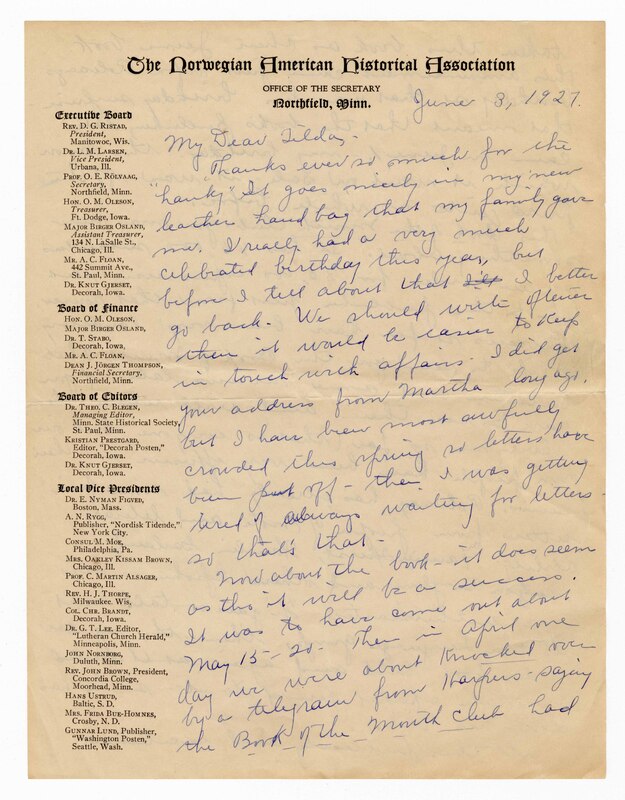 The Norwegian American Historical Association
OFFICE OF THE SECRETARY
Northfield, Minn.
June 3, 1927.
Executive Board
REV. D. G. RISTAD,
President,
Manitowoc, Wis.
DR. L. M. LARSEN,
Vice President,
Urbana, Ill.
PROF. O. E. RÖLVAAG,
Secretary,
Northfield, Minn.
HON. O. M. OLESON,
Treasurer,
Ft. Dodge, Iowa.
MAJOR BIRGER OSLAND,
Assistant Treasurer,
134 N. LaSalle St.,
Chicago, Ill.
MR. A. C. FLOAN,
442 Summit Ave.,
St. Paul, Minn.
DR. KNUT GJERSET,
Decorah, Iowa.
Board of Finance
HON. O. M. OLESON,
MAJOR BIRGER OSLAND,
DR. T. STABO,
Decorah, Iowa.
MR. A. C. FLOAN,
DEAN J. JÖRGEN THOMPSON,
Financial Secretary,
Northfield, Minn.
Board of Editors
DR. THEO. C. BLEGEN,
Managing Editor,
Minn. State Historical Society,
St. Paul, Minn.
KRISTIAN PRESTGARD,
Editor, "Decorah Posten,"
Decorah, Iowa.
DR. KNUT GJERSET,
Decorah, Iowa.
Local Vice Presidents
DR. E. NYMAN FIGVED,
Boston, Mass.
A. N. RYGG,
Publisher, "Nordisk Tidende,"
New York City.
CONSUL M. MOE,
Philadelphia, Pa.
MRS. OAKLEY KISSAM BROWN,
Chicago, Ill.
PROF. C. MARTIN ALSAGER,
Chicago, Ill.
REV. H. J. THORPE,
Milwaukee, Wis.
COL. CHR. BRANDT,
Decorah, Iowa.
DR. G. T. LEE, Editor,
"Lutheran Church Herald,"
Minneapolis, Minn.
JOHN NORNBORG,
Duluth, Minn.
REV. JOHN BROWN, President,
Concordia College,
Moorhead, Minn.
HANS USTRUD,
Baltic, S. D.
MRS. FRIDA BUE-HOMNES,
Crosby, N. D.
GUNNAR LUND, Publisher,
"Washington Posten,"
Seattle, Wash.
My Dear Tilda,-
Thanks ever so much for the
"hanky" It goes nicely in my new
leather hand bag that my family gave
me. I really had a very much
celebrated birthday this year, but
before I tell about that I better
go back. We should write oftener
then it would be easier to keep
in touch with affairs. I did get
your address from Martha long ago,
but I have been most awfully
crowded this spring so letters have
been put off - then I was getting
tired of always waiting for letters -
so that's that -
Now about the book - it does seem
as this it will be a success.
It was to have come out about
May 15-20. Then in April one
day we were about knocked over
by a telegram from Harpers - saying
the Book of the Month Club had